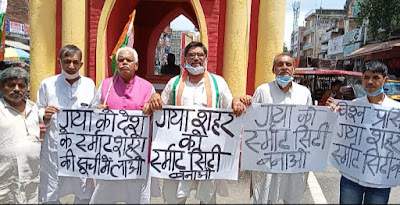 गया को देश
के स्मार्ट शहरों
की सूची में लाओ
गया शहर
को
स्मार्ट सिटी
बनाओ
गया को
स्मार्ट सिटी
बनाओ
गया शहर
स्मार्ट सिटी